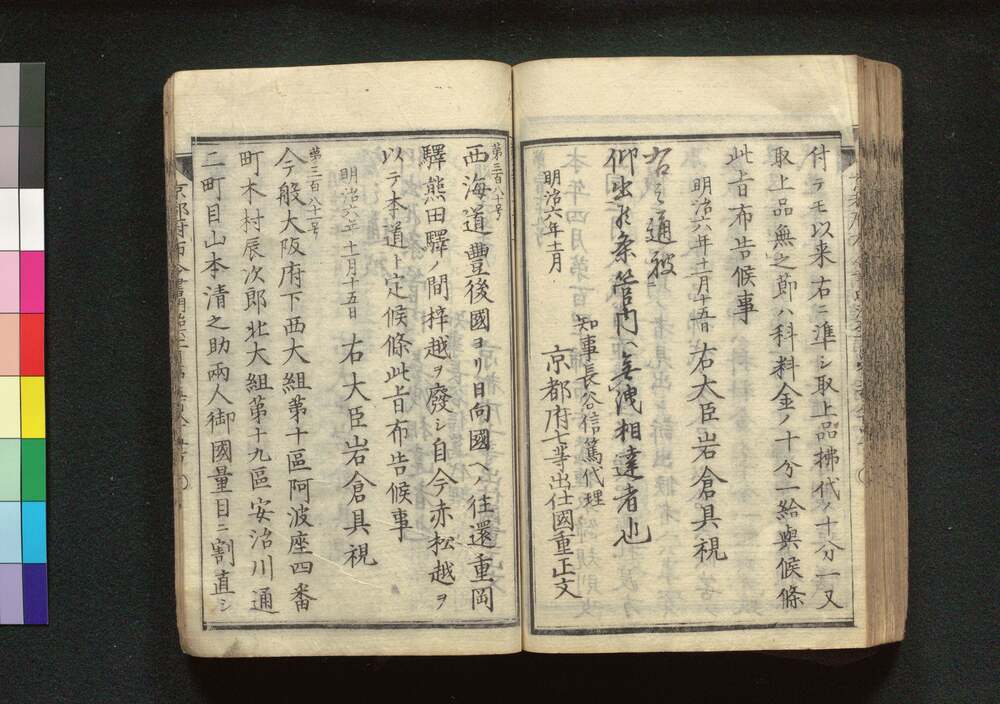 付テモ以来右ニ準シ取上品拂代ノ十分一又
取上品無之節ハ科料金ノ十分一給與候條
此旨布告候事
明治六年十一月十五日　右大臣岩倉具視
右之通被
仰出候条管内ヘ無洩相達者也
知事長谷信篤代理
明治六年十一月　京都府七等出仕國重正文
第三百八十号
西海道豊後國ヨリ日向國ヘ往還重岡
驛熊田驛ノ間梓越ヲ廢シ自今赤松越ヲ
以テ本道ト定候條此旨布告候事
明治六年十一月十五日　右大臣岩倉具視
第三百八十一号
今般大阪府下西大組第十區阿波座四番
町木村辰次郎北大組第十九區安治川通
二町目山本清之助兩人御國量目ニ割直シ